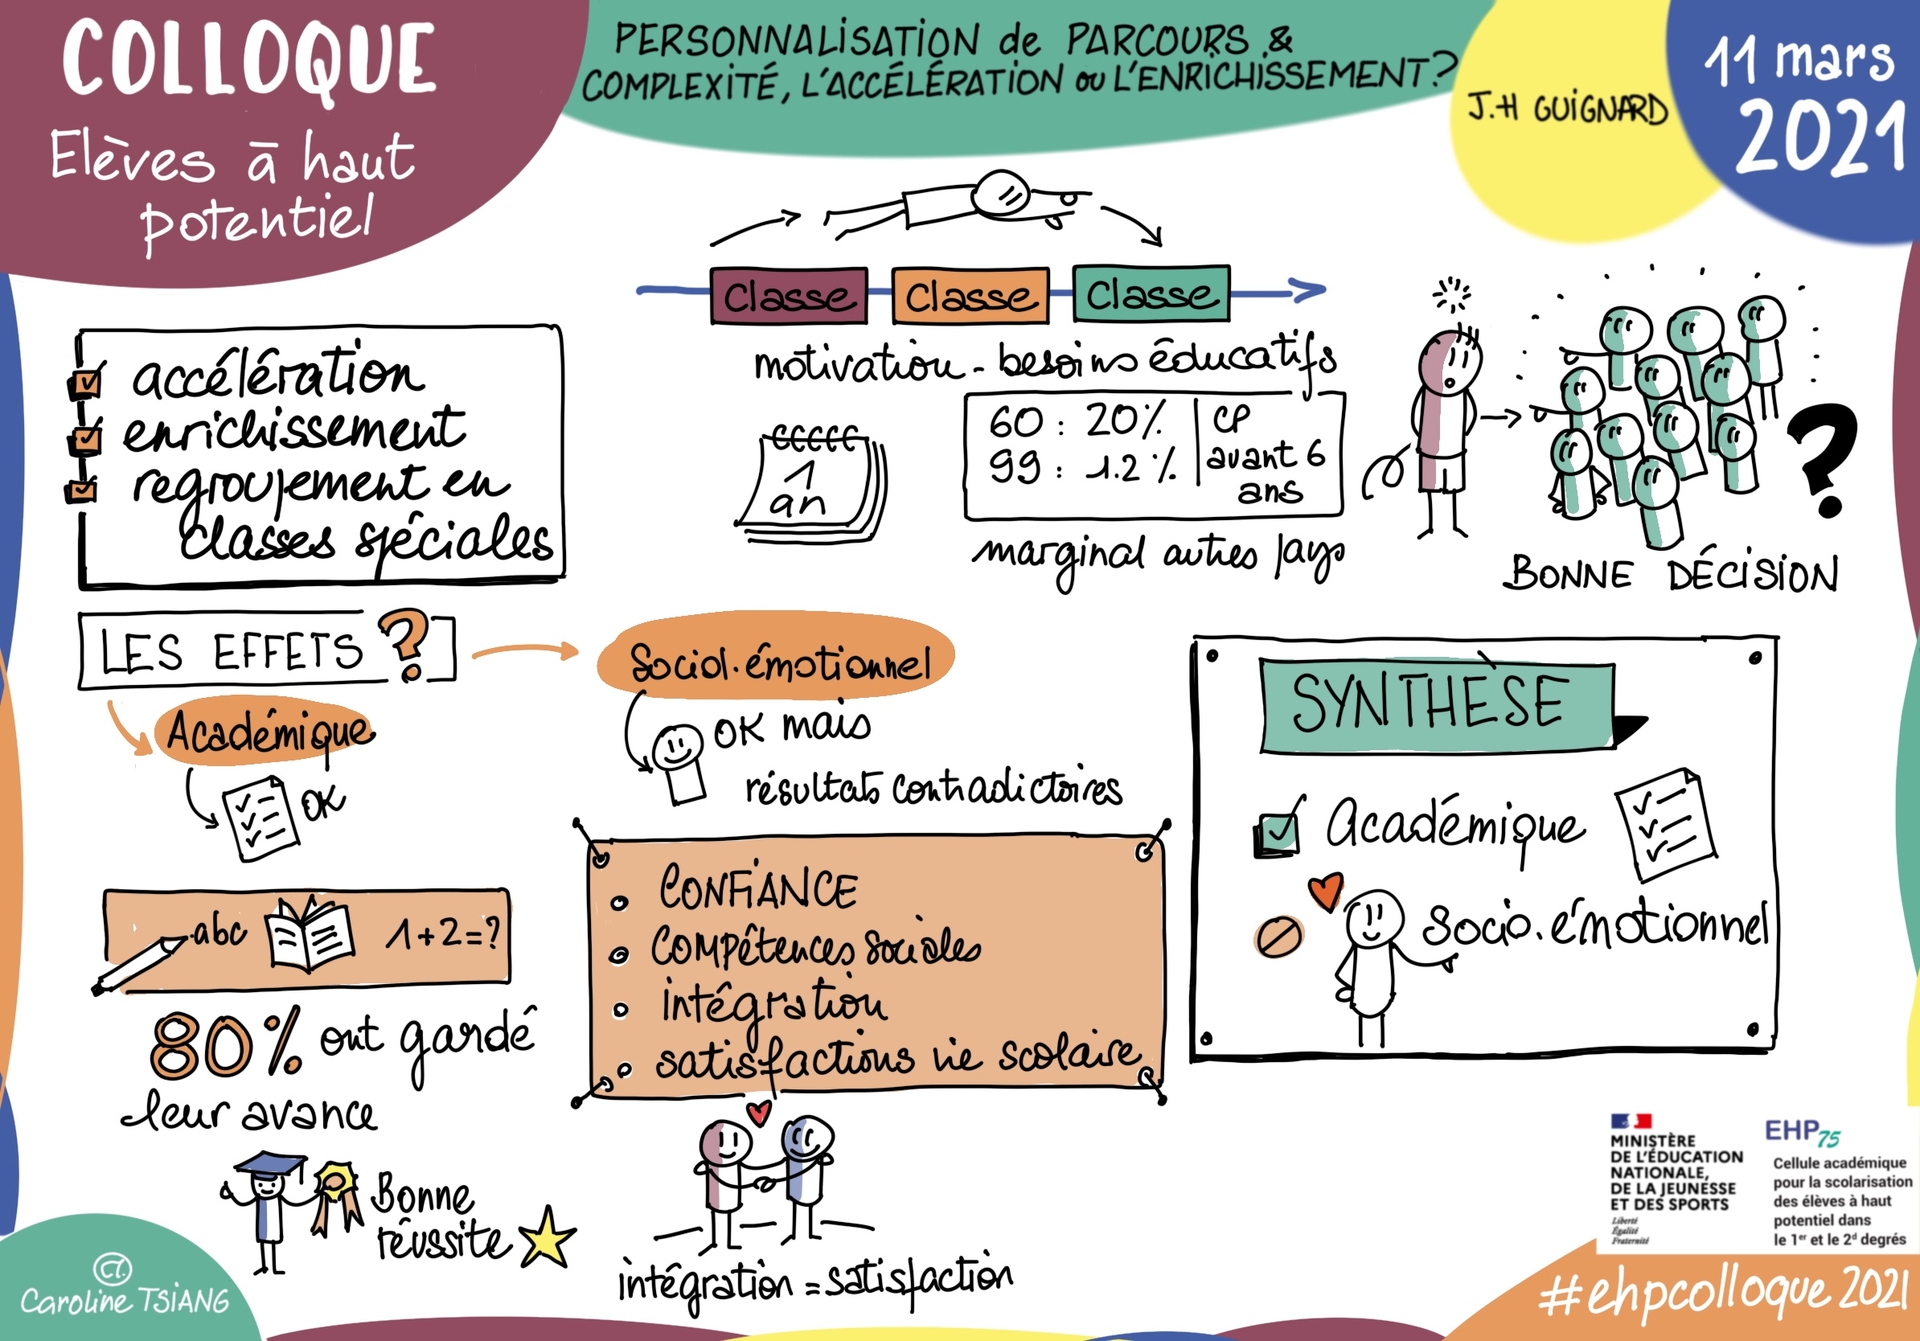 COLLOQUE
Elèves à haut
potentiel
PERSONNALISATION de PARCOURS &
COMPLEXITÉ, L'ACCÉLÉRATION OU L'ENRICHISSEMENT?
J.H GUIGNARD
11 mars
2021
accélération
enrichissement
regroupement en
classes spéciales
Classe
Classe
Classe
motivation - besoins éducatifs
1
an
60 : 20% | CP
99 : 1.2% | avant 6
ans
marginal autres pays
?
BONNE DÉCISION
LES EFFETS ?
Académique
OK
abc
1+2=?
80% ont gardé
leur avance
Bonne
réussite
Sociol.émotionnel
OK mais
résultats contradictoires
CONFIANCE
Compétences sociales
intégration
satisfactions vie scolaire
intégration = satisfaction
SYNTHESE
Académique
Socio.émotionnel
MINISTÈRE
DE L'ÉDUCATION
NATIONALE,
DE LA JEUNESSE
ET DES SPORTS
Liberté
Égalité
Fraternité
EHP75
Cellule académique
pour la scolarisation
des élèves à haut
potentiel dans
le 1er et le 2d degrés
#ehpcolloque2021
CT.
Caroline TSIANG